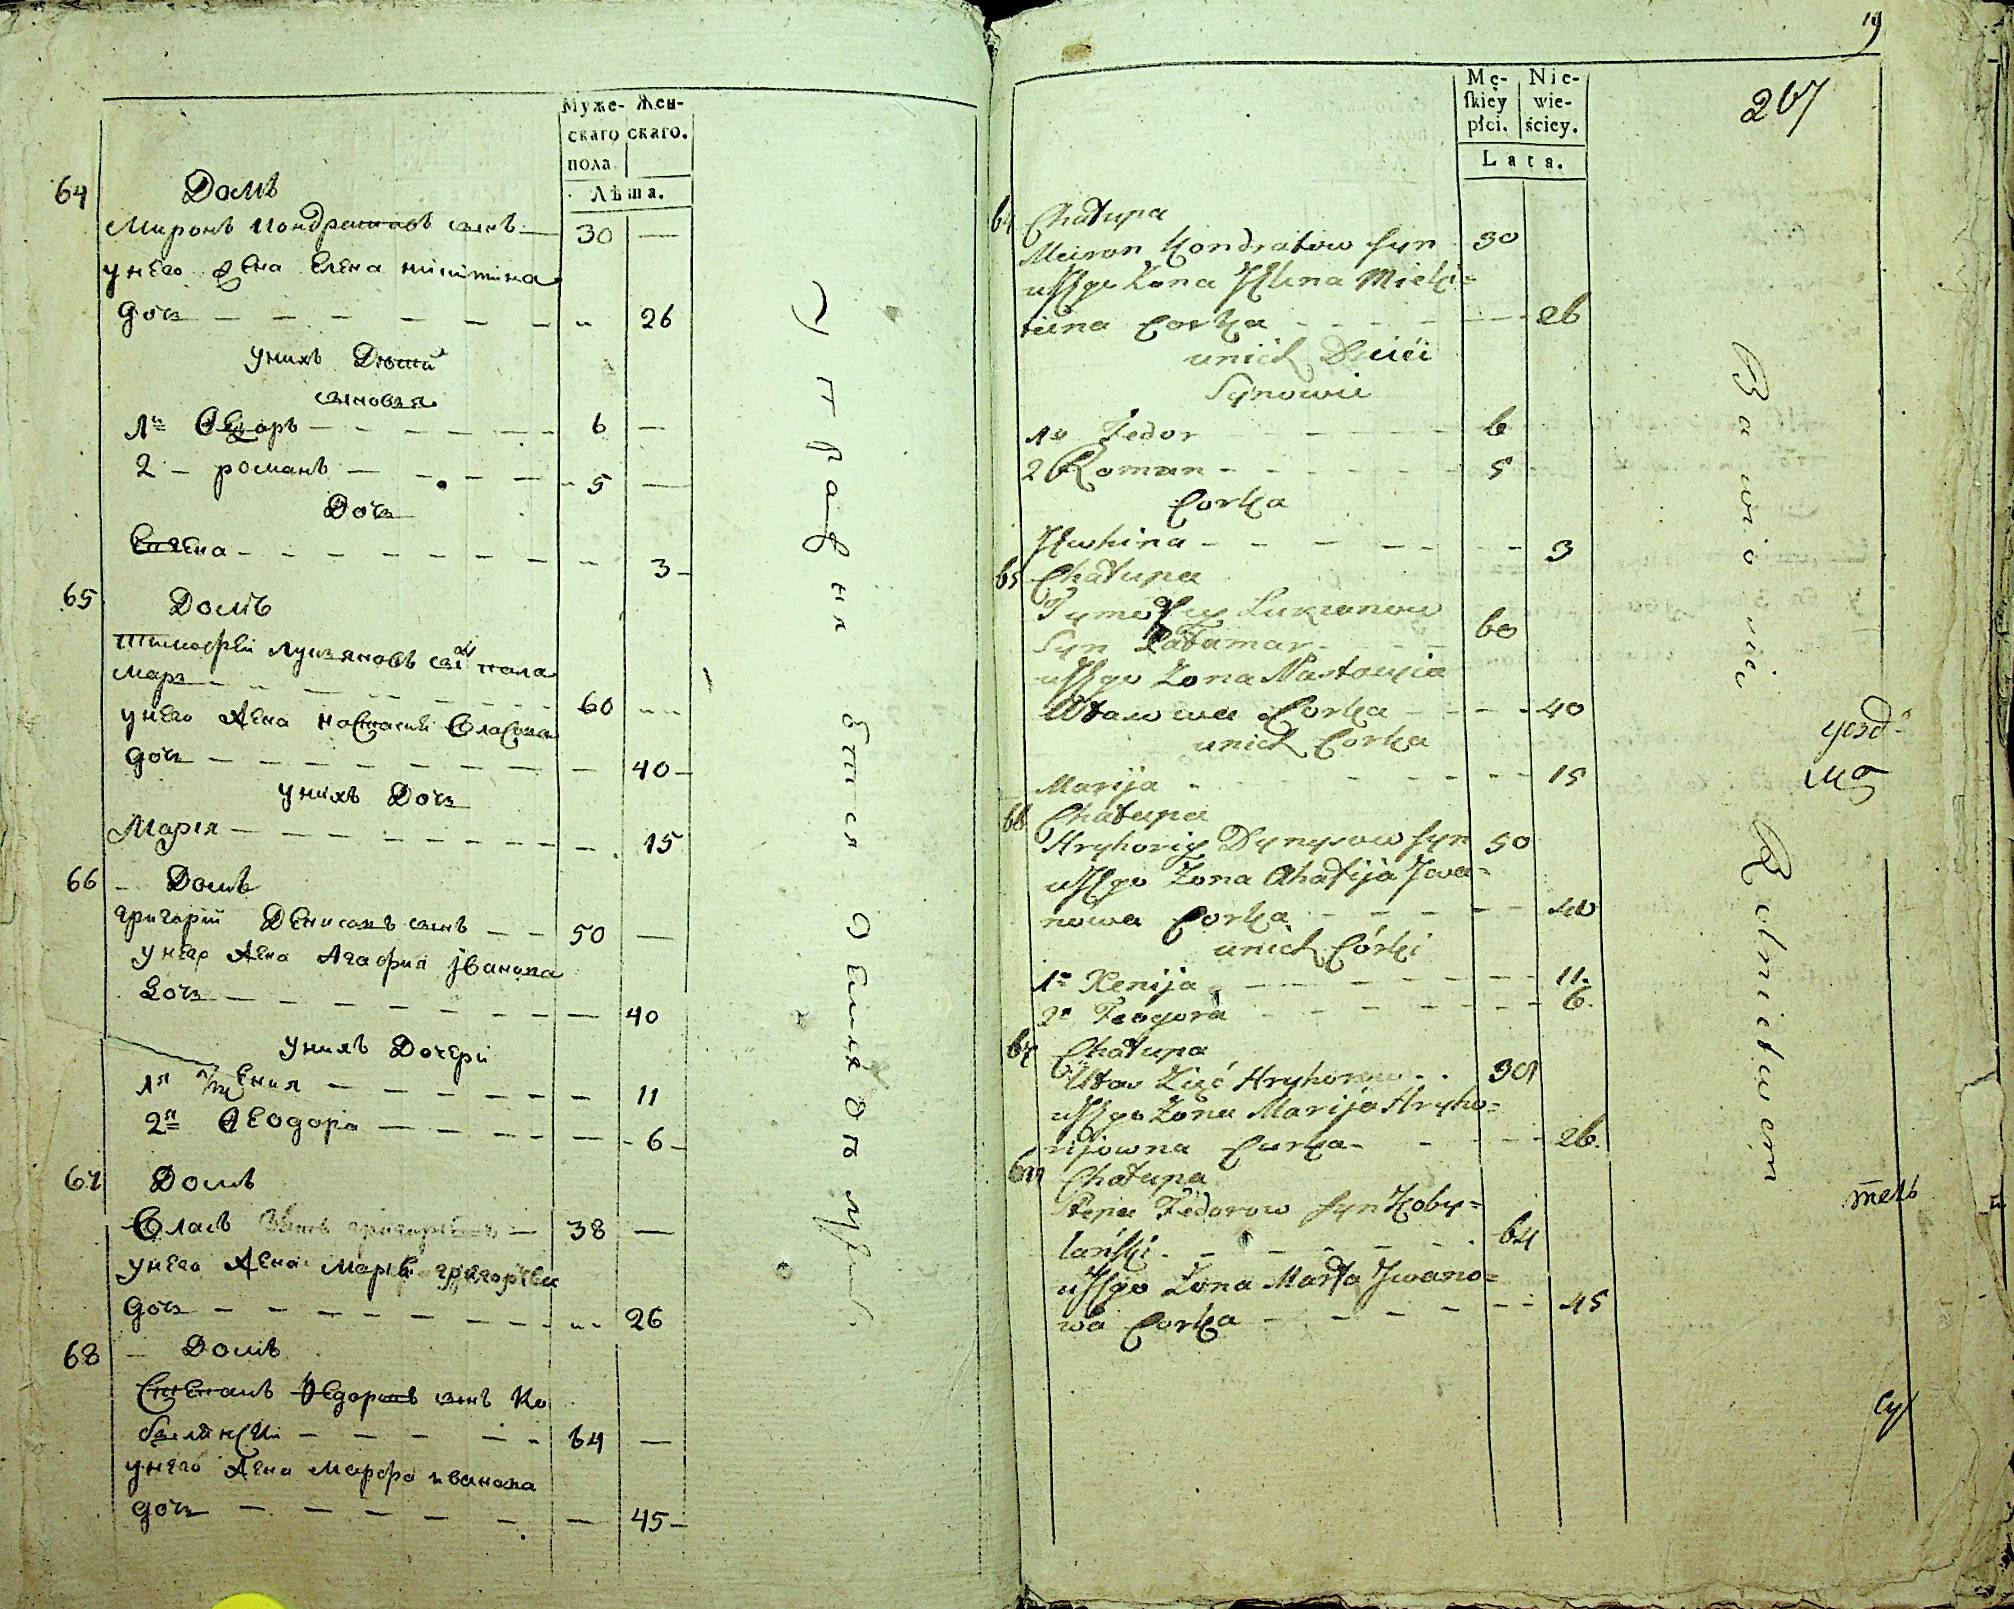 Муже- Жен-
скаго скаго.
пола
Лѣта.
64 Домъ
Миронъ Кондратовъ сынъ — 30 —
у него жена Елена никитина
дочь — — — — — — — „ 26
у нихъ Дѣти
сыновья
1й Ѳедоръ — — — — — — 6 —
2 — романъ — — — — — „ 5 —
Дочь
Евгена — — — — — — — „ 3 —
65 Домъ
тимофѣй лукяновъ сынъ пала
марь — — — — — — — 60 „
у него жена настасия Власова
дочь — — — — — — — — 40 —
у нихъ Дочь
Марія — — — — — — — — 15
66 — Домъ
григорій Денисовъ сынъ — — 50 —
у него жена Агафия Іванова
дочь — — — — — — — 40
у нихъ Дочери
1я Ксения — — — — — — — 11
2я Ѳеодора — — — — — — 6 —
67 Домъ
Власъ григорьевъ — 38 —
у него жена Марія григорьева
дочь — — — — — — — „ 26
68 — Домъ
Степанъ Ѳедоровъ сынъ Ко
былянски — — — — — 64 —
у него жена марфа иванова
дочь — — — — — — — 45 —
Упражняются Земледѣлиемъ
19
Mę- Nie-
ſkiey wie-
płci. ściey.
Lata.
267
64 Chałupa
Miron Kondratow syn 30
u Niego Żona Helina Miki-
tina Corka — — — — — 26
u nich Dzieci
Synowie
1y Fedor — — — — — 6
2 Roman — — — — — 5
Corka
Jewhina — — — — — — 3
65 Chałupa
Tymofiey Lukianow
Syn Pałamar — — — 60
u Niego Żona Nastazia
Własowa Corka — — — 40
u nich Corka
Marija — — — — — — 15
66 Chałupa
Hryhoriy Dynysow syn 50
u Niego Żona Ahafija Jwa-
nowa Corka — — — — — 40
u nich Córki
1a Xenija — — — — — — 11.
2a Teodora — — — — — — 6.
67 Chałupa
Własz Hryhorow . . 38
u Niego Żona Marija Hryho-
rijowna Curka — — — — — 26.
68 Chałupa
Stepan Fedorow syn Koby-
lański — — — — — 64
u Niego Żona Marta Jwano-
wa Corka — — — — — — 45
Bawionii Rolnictwem
уезд
тель
су